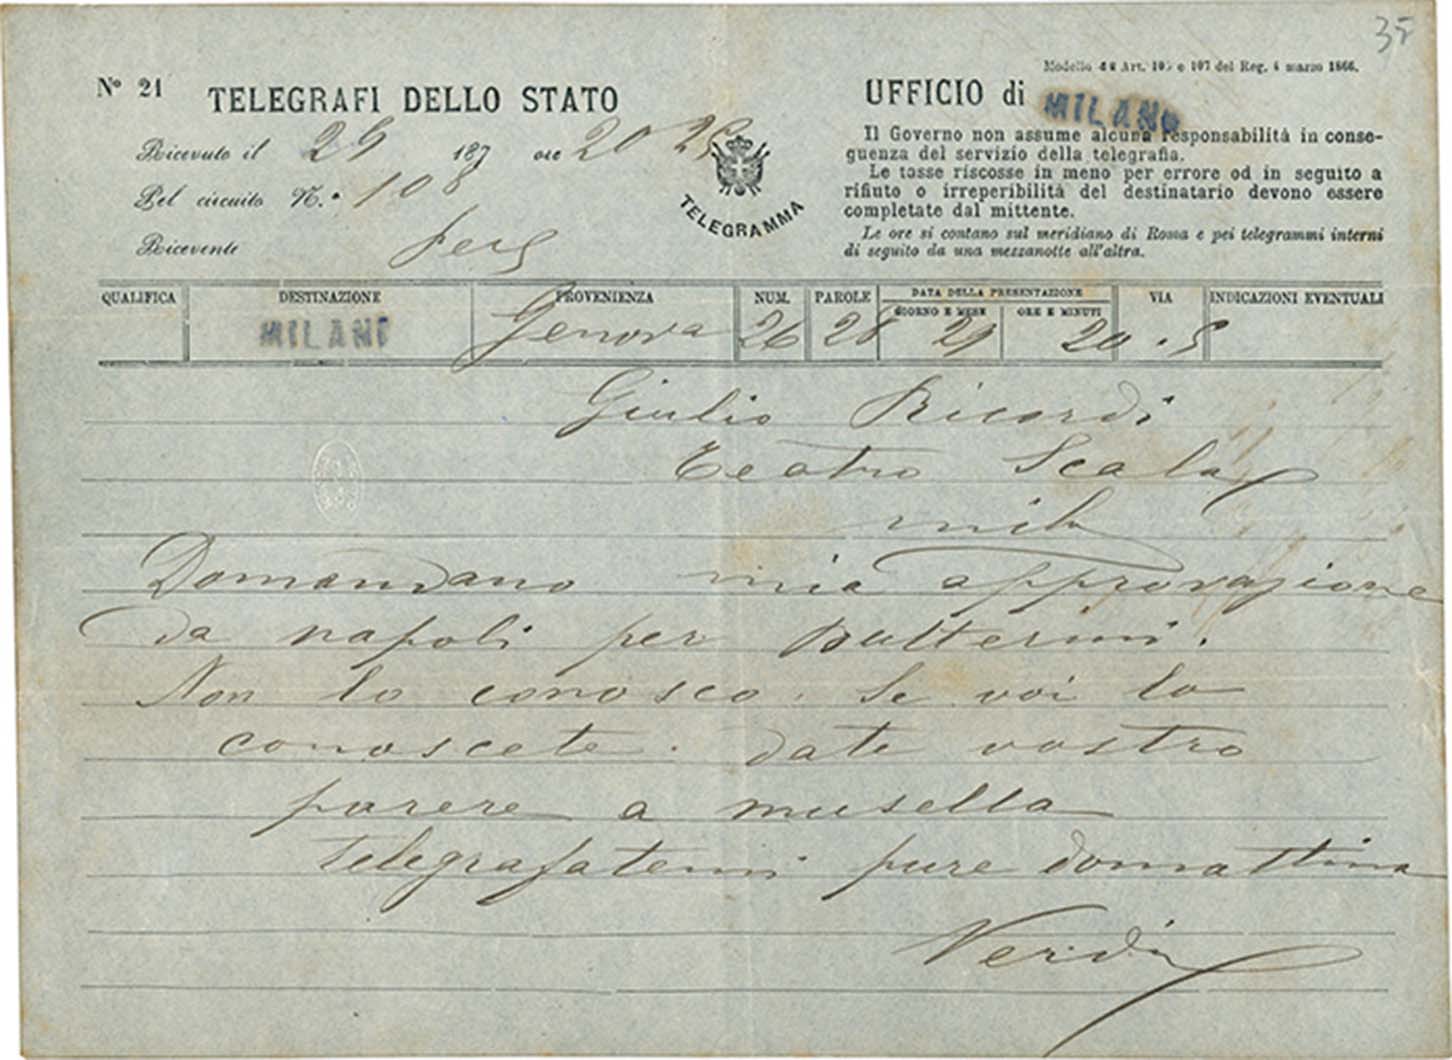 35
Modello 42 Art. 105 e 107 del Reg. 4 marzo 1866.
N° 21
TELEGRAFI DELLO STATO
UFFICIO di MILANO
Ricevuto il 29 187 ore 20 25
Pel circuito N.° 108
Ricevente
TELEGRAMMA
Il Governo non assume alcuna responsabilità in conse-
guenza del servizio della telegrafia.
Le tasse riscosse in meno per errore od in seguito a
rifiuto o irreperibilità del destinatario devono essere
completate dal mittente.
Le ore si contano sul meridiano di Roma e pei telegrammi interni
di seguito da una mezzanotte all'altra.
QUALIFICA DESTINAZIONE PROVENIENZA NUM. PAROLE DATA DELLA PRESENTAZIONE VIA INDICAZIONI EVENTUALI
GIORNO E MESE ORE E MINUTI
MILANO Genova 26 28 29 20.5
Giulio Ricordi
Teatro Scala
Mil
Domandano mia approvazione
da napoli per Butterini.
Non lo conosco. Se voi lo
conoscete. date vostro
parere a musella
telegrafatemi pure domattina
Verdi